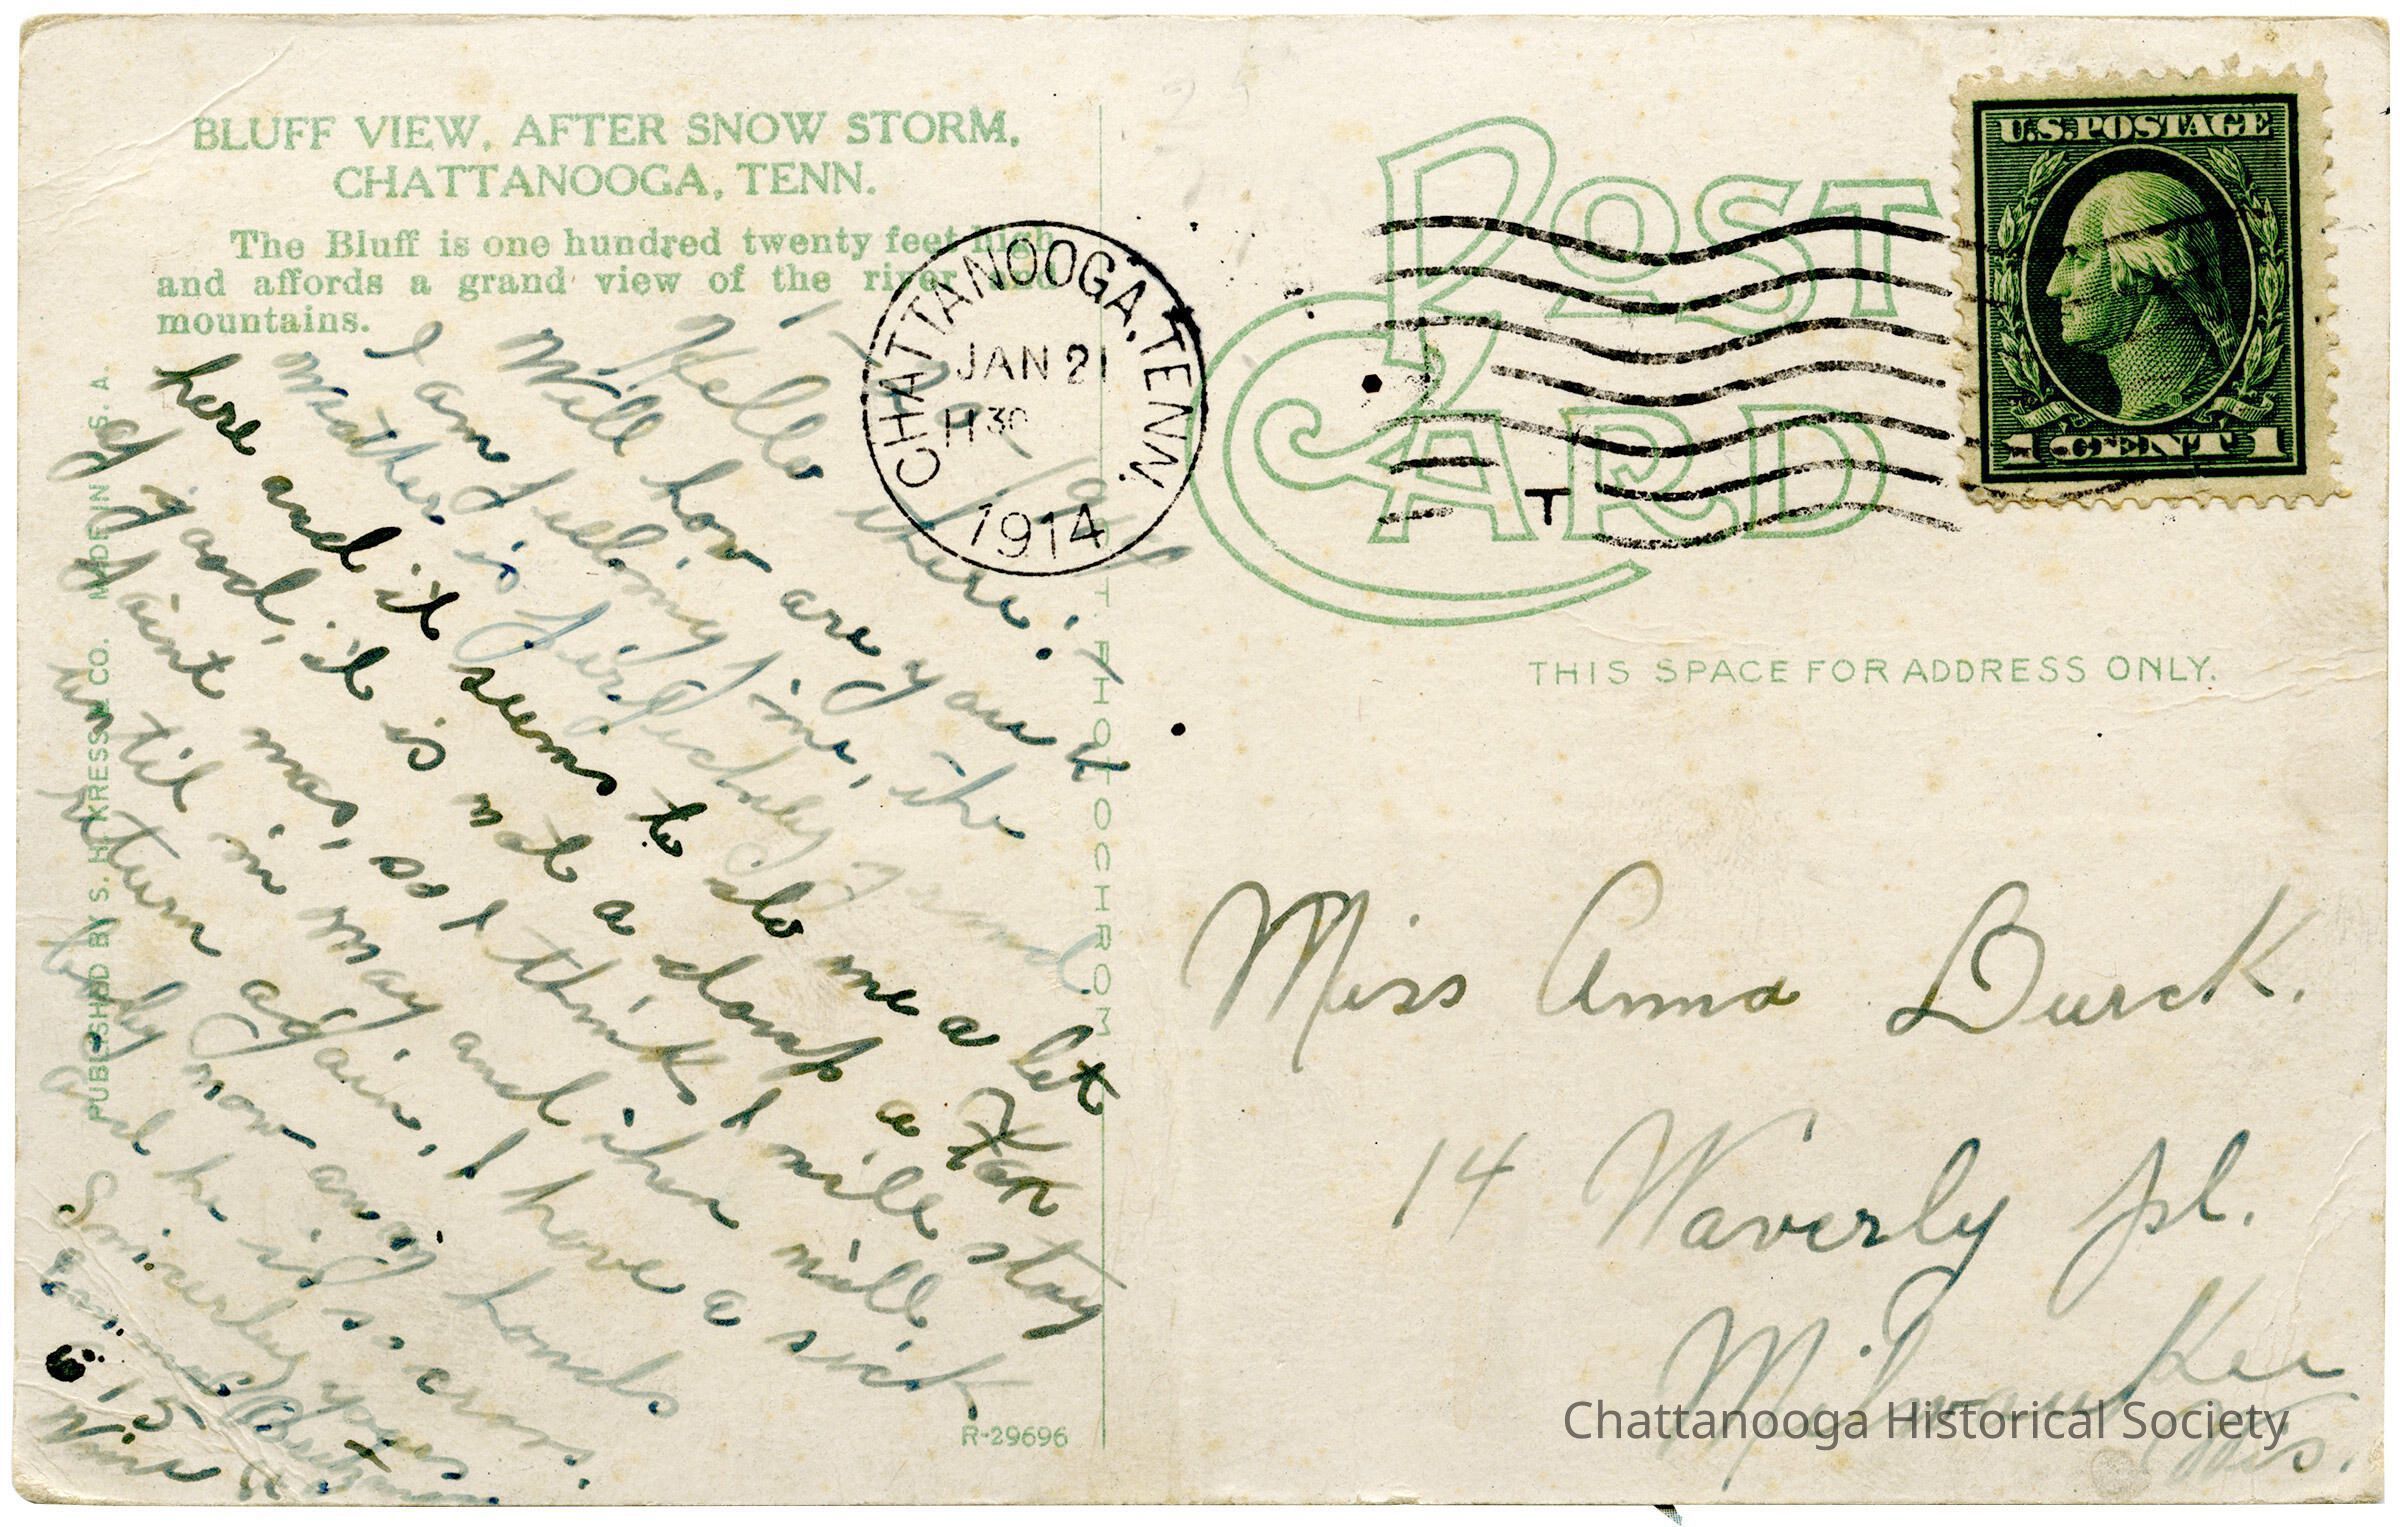 BLUFF VIEW, AFTER SNOW STORM,
CHATTANOOGA, TENN.
The Bluff is one hundred twenty feet high
and affords a grand view of the river and
mountains.
CHATTANOOGA, TENN.
JAN 21
1130
1914
POST
CARD
U.S. POSTAGE
1 CENT 1
T
THIS SPACE FOR ADDRESS ONLY.
Hello there:
Will how are you
I am feeling fine, the
Mother is
here and it seems to do me a lot
of good, it is not a damp a
aint mas, so I think I will stay
until in May and then will
return again, I have a sick
body now on my hands
and he is so cross.
Sincerely yours
Miss Anna Durck.
14 Waverly pl.
Milwaukee
Wis.
PUBLISHED BY S. H. KRESS & CO. MADE IN U. S. A.
PHOTOCHROM
R-29696
Chattanooga Historical Society